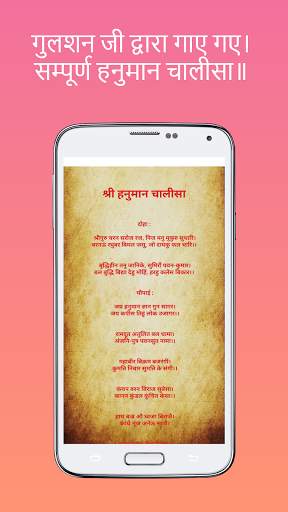 गुलशन जी द्वारा गाए गए।
सम्पूर्ण हनुमान चालीसा॥
श्री हनुमान चालीसा
दोहा :
श्रीगुरु चरन सरोज रज, निज मनु मुकुरु सुधारि।
बरनऊं रघुबर बिमल जसु, जो दायकु फल चारि।।
बुद्धिहीन तनु जानिके, सुमिरौं पवन-कुमार।
बल बुद्धि बिद्या देहु मोहिं, हरहु कलेस बिकार।।
चौपाई :
जय हनुमान ज्ञान गुन सागर।
जय कपीस तिहुं लोक उजागर।।
रामदूत अतुलित बल धामा।
अंजनि-पुत्र पवनसुत नामा।।
महाबीर बिक्रम बजरंगी।
कुमति निवार सुमति के संगी।।
कंचन बरन बिराज सुबेसा।
कानन कुंडल कुंचित केसा।।
हाथ बज्र औ ध्वजा बिराजै।
कांधे मूंज जनेऊ साजै।